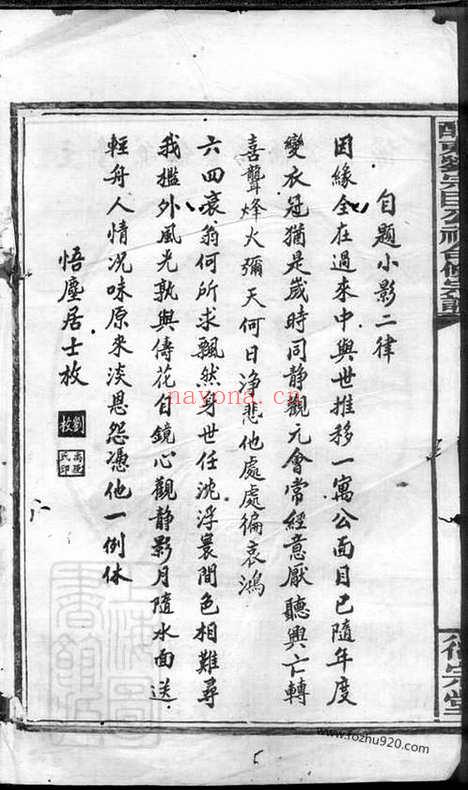 自題小影二律
因緣全在過來中與世推移一寓公面目已隨年度
變衣冠猶是歲時同静觀元會常經意厭聽興亡轉
喜聾烽火彌天何日净悲他處處徧哀鴻
六四衰翁何所求飄然身世任沈浮寰間色相難尋
我檻外風光孰與儔花自鏡心觀静影月隨水面送
輕舟人情况味原来淡恩怨憑他一例休
悟塵居士枚
劉枚
nayona.cn
www.fozhu920.com